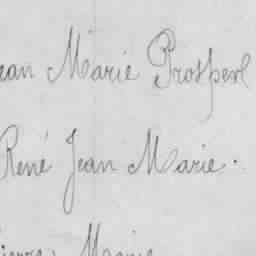 ean Marie Prosper
René Jean Marie.
ierre, Marie